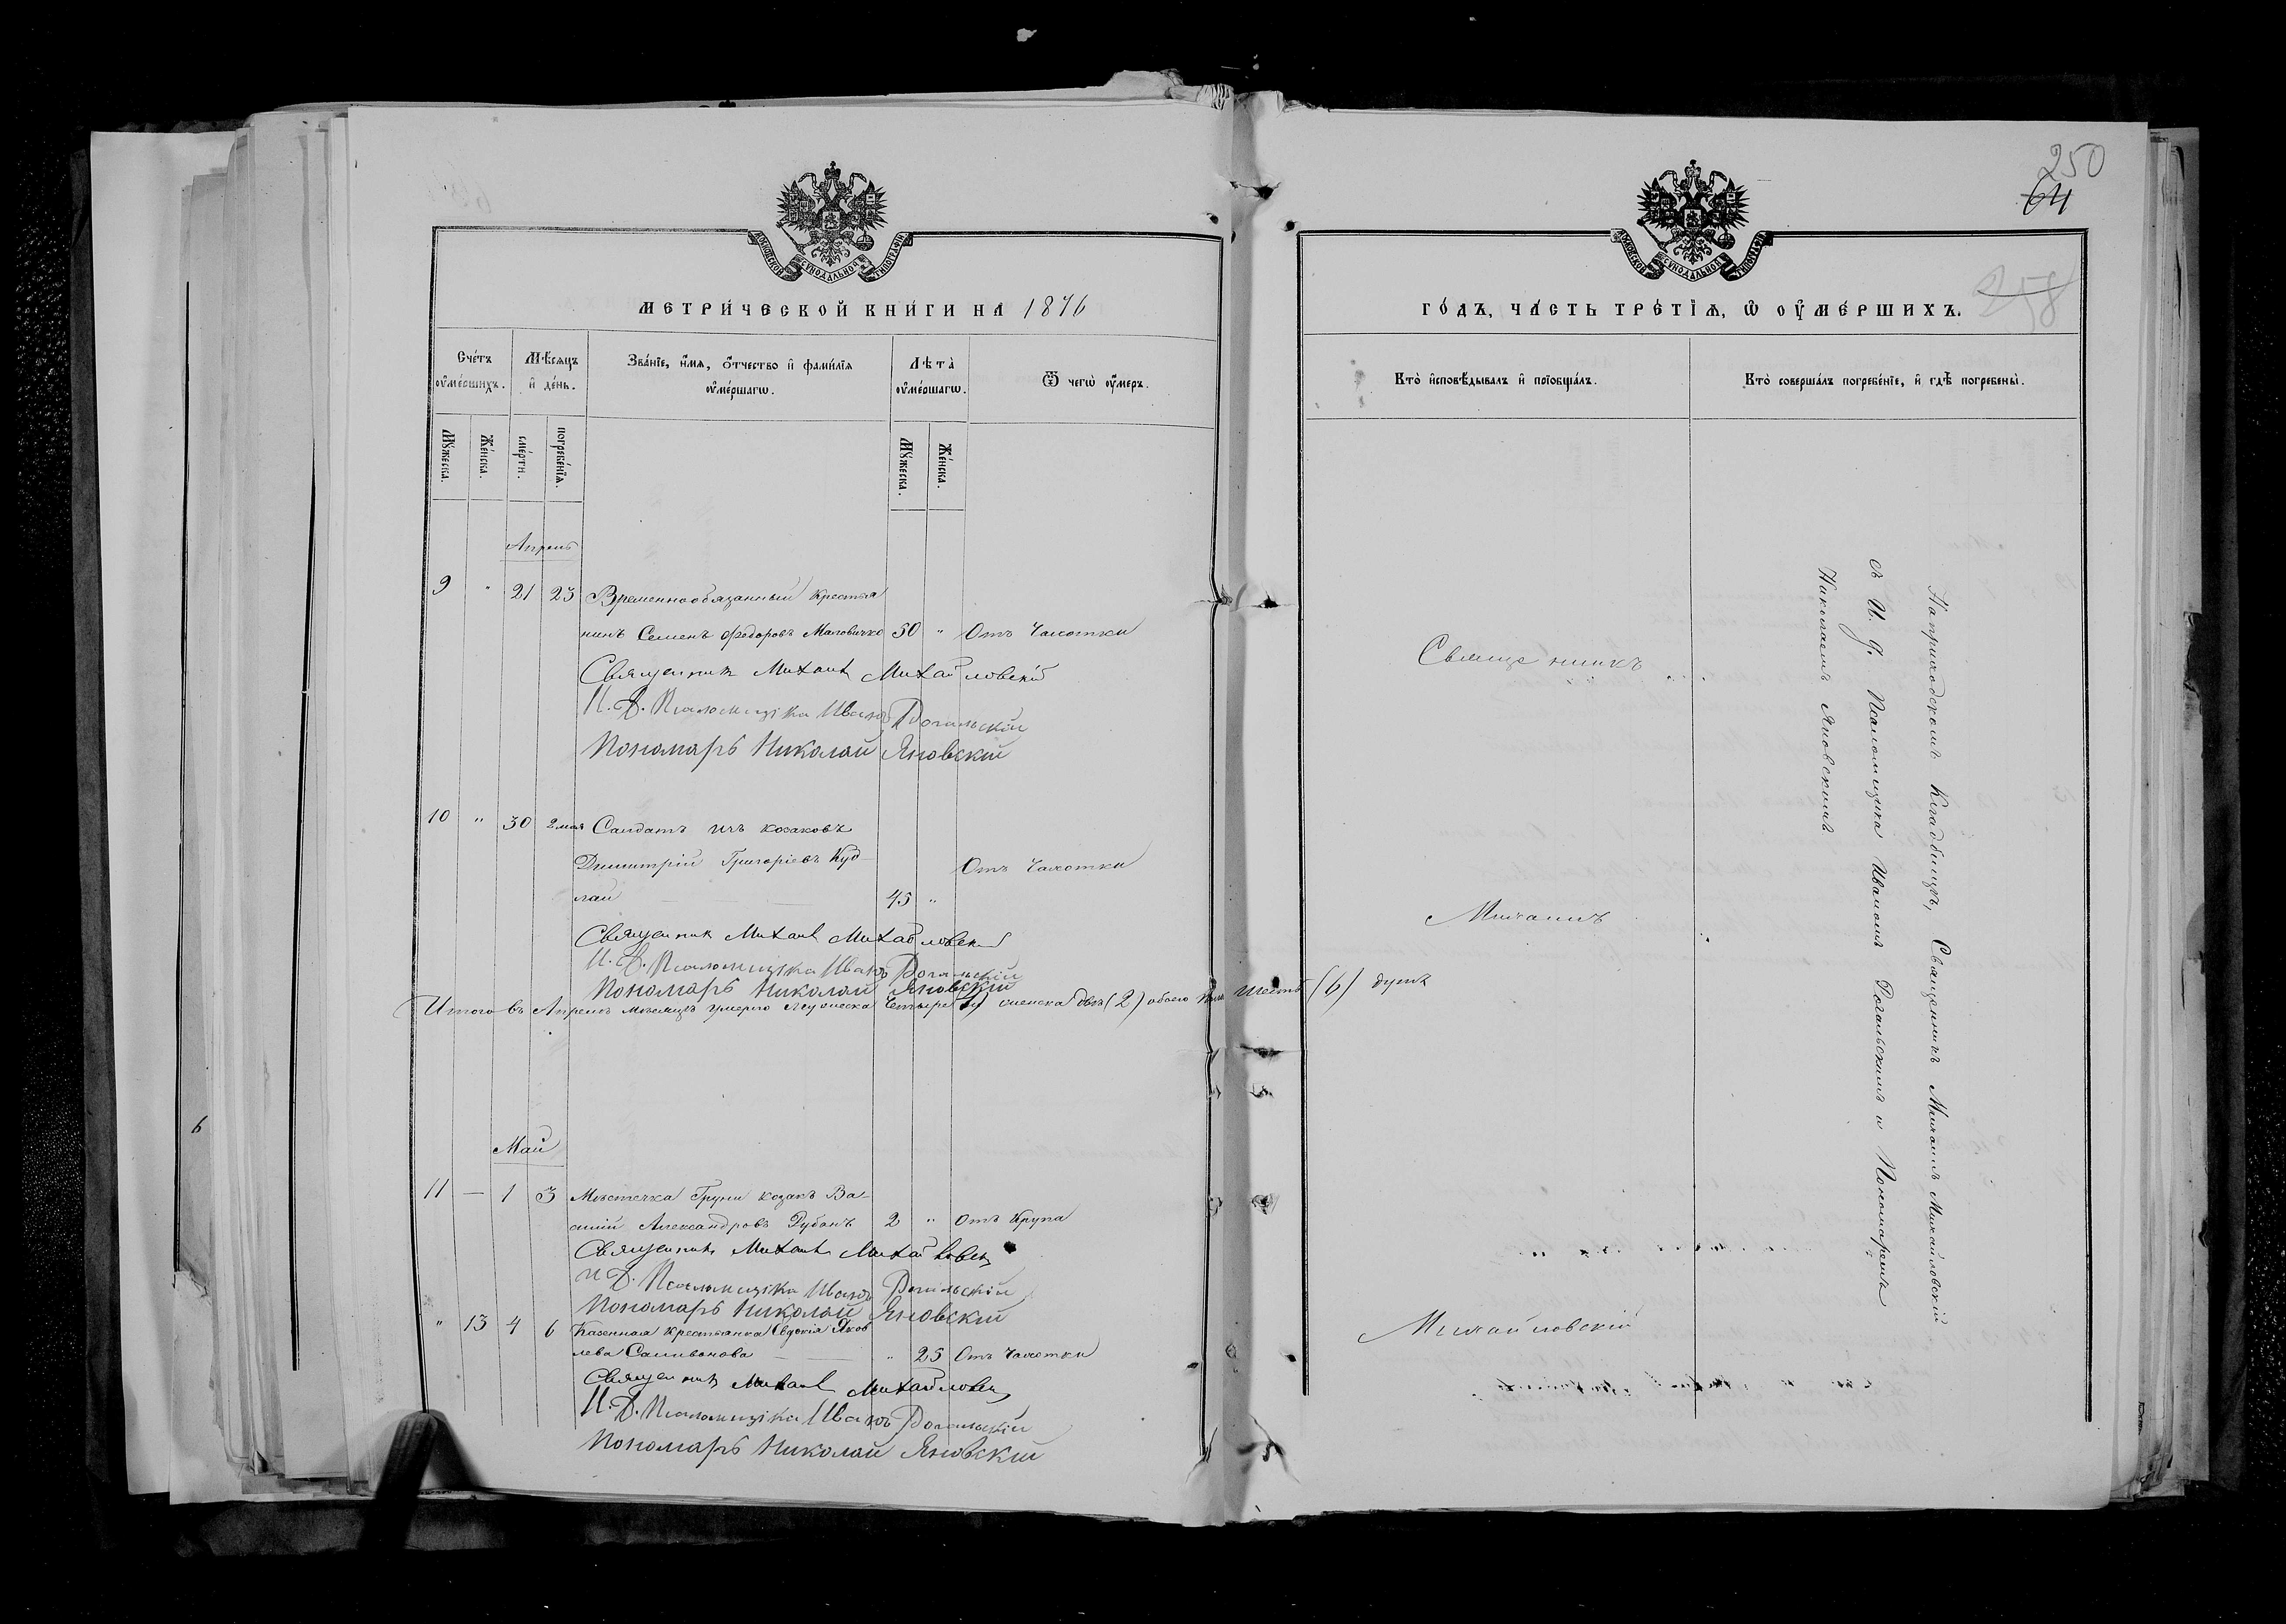 250
64
МОСКОВСКОЙ СУНОДАЛЬНОЙ ТИПОГРАФІИ
МЕТРИ́ЧЕСКОЙ КНИ́ГИ НА 1876
Сче́тъ ᲂу҆ме́ршихъ.
Мѣ́сяцъ и҆ де́нь.
Зва́нїе, и҆́мя, ѻ҆́тчество и҆ фами́лїя ᲂу҆ме́ршагѡ.
Лѣта̀ ᲂу҆ме́ршагѡ.
Ѿ чегѡ̀ ᲂу҆́меръ.
Мꙋ́жеска.
Же́нска.
сме́рти.
погребе́нїя.
Мꙋ́жеска.
Же́нска.
Апрель
9 " 21 23 Временнообязанный крестья
нинъ Семенъ Федоровъ Маловичко 50 " Отъ Чахотки
Священникъ Михаилъ Михайловскій
И. Д. Псаломщика Иванъ Рогальскій
Пономарь Николай Яновскій
10 " 30 2 мая Салдатъ изъ козаковъ
Димитрій Григоріевъ Куд-
лай 45 " Отъ Чахотки
Священникъ Михаилъ Михайловскій
И. Д. Псаломщика Иванъ Рогальскій
Пономарь Николай Яновскій
Итого въ Апрелѣ мѣсяцѣ умерло мужеска четыре (4) женска двѣ (2) обоего пола шесть (6) душъ
Май
11 — 1 3 Мѣстечка Груни козакъ Ва-
силій Александровъ Рубанъ 2 " Отъ Крупа
Священникъ Михаилъ Михайловскій
И. Д. Псаломщика Иванъ Рогальскій
Пономарь Николай Яновскій
" 13 4 6 Казенная крестьянка Евдокія Яков
лева Саливонова " 25 Отъ Чахотки
Священникъ Михаилъ Михайловскій
И. Д. Псаломщика Иванъ Рогальскій
Пономарь Николай Яновскій
МОСКОВСКОЙ СУНОДАЛЬНОЙ ТИПОГРАФІИ
ГО́ДЪ, ЧА́СТЬ ТРЕ́ТЇЯ, Ѡ҆ ОУ҆МЕ́РШИХЪ.
258
Кто̀ и҆сповѣ́дывалъ и҆ прїобща́лъ.
Кто̀ соверша́лъ погребе́нїе, и҆ гдѣ̀ погребены̀.
Священникъ
Михаилъ
Михайловскій
На приходскомъ Кладбищѣ, Священникъ Михаилъ Михайловскій
съ И. д. Псаломщика Иваномъ Рогальскимъ и Пономаремъ
Николаемъ Яновскимъ
6